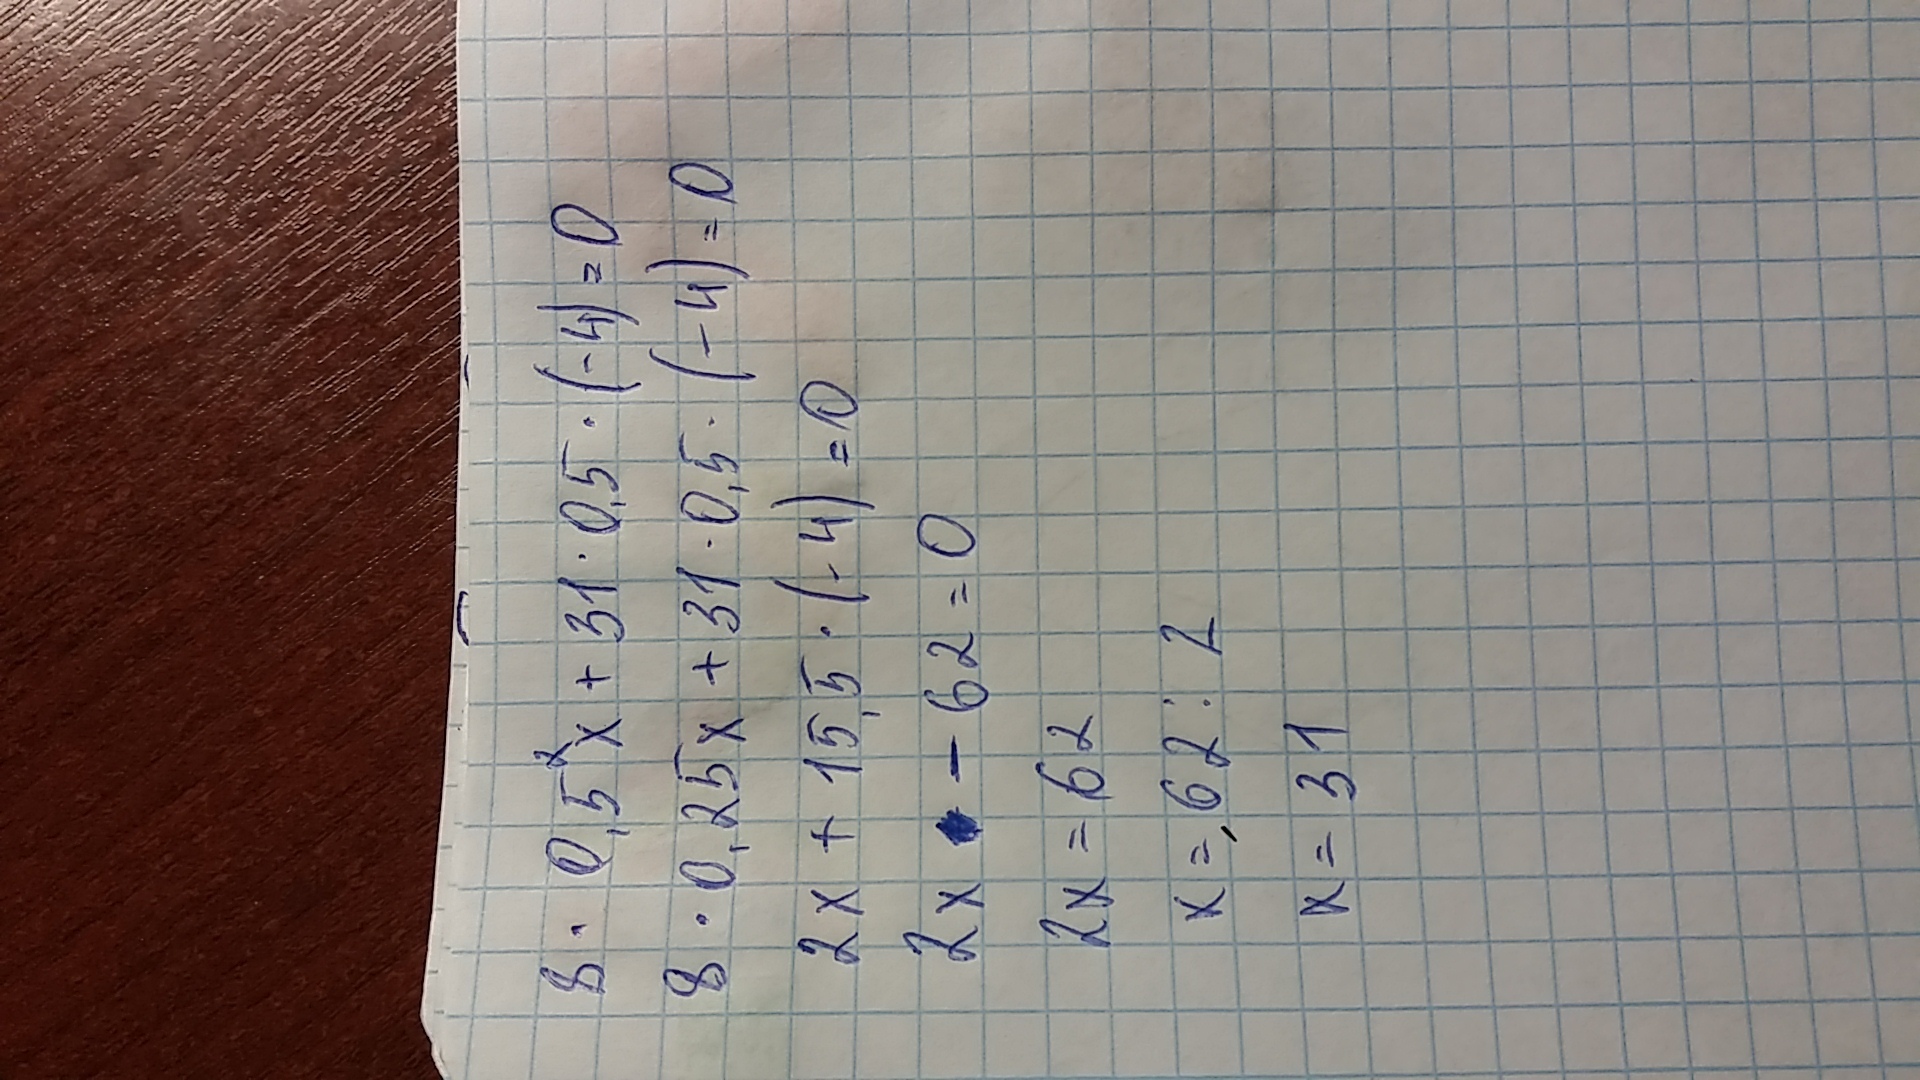 8 · 0,5²x + 31 · 0,5 · (-4) = 0
8 · 0,25x + 31 · 0,5 · (-4) = 0
2x + 15,5 · (-4) = 0
2x - 62 = 0
2x = 62
x = 62 : 2
x = 31